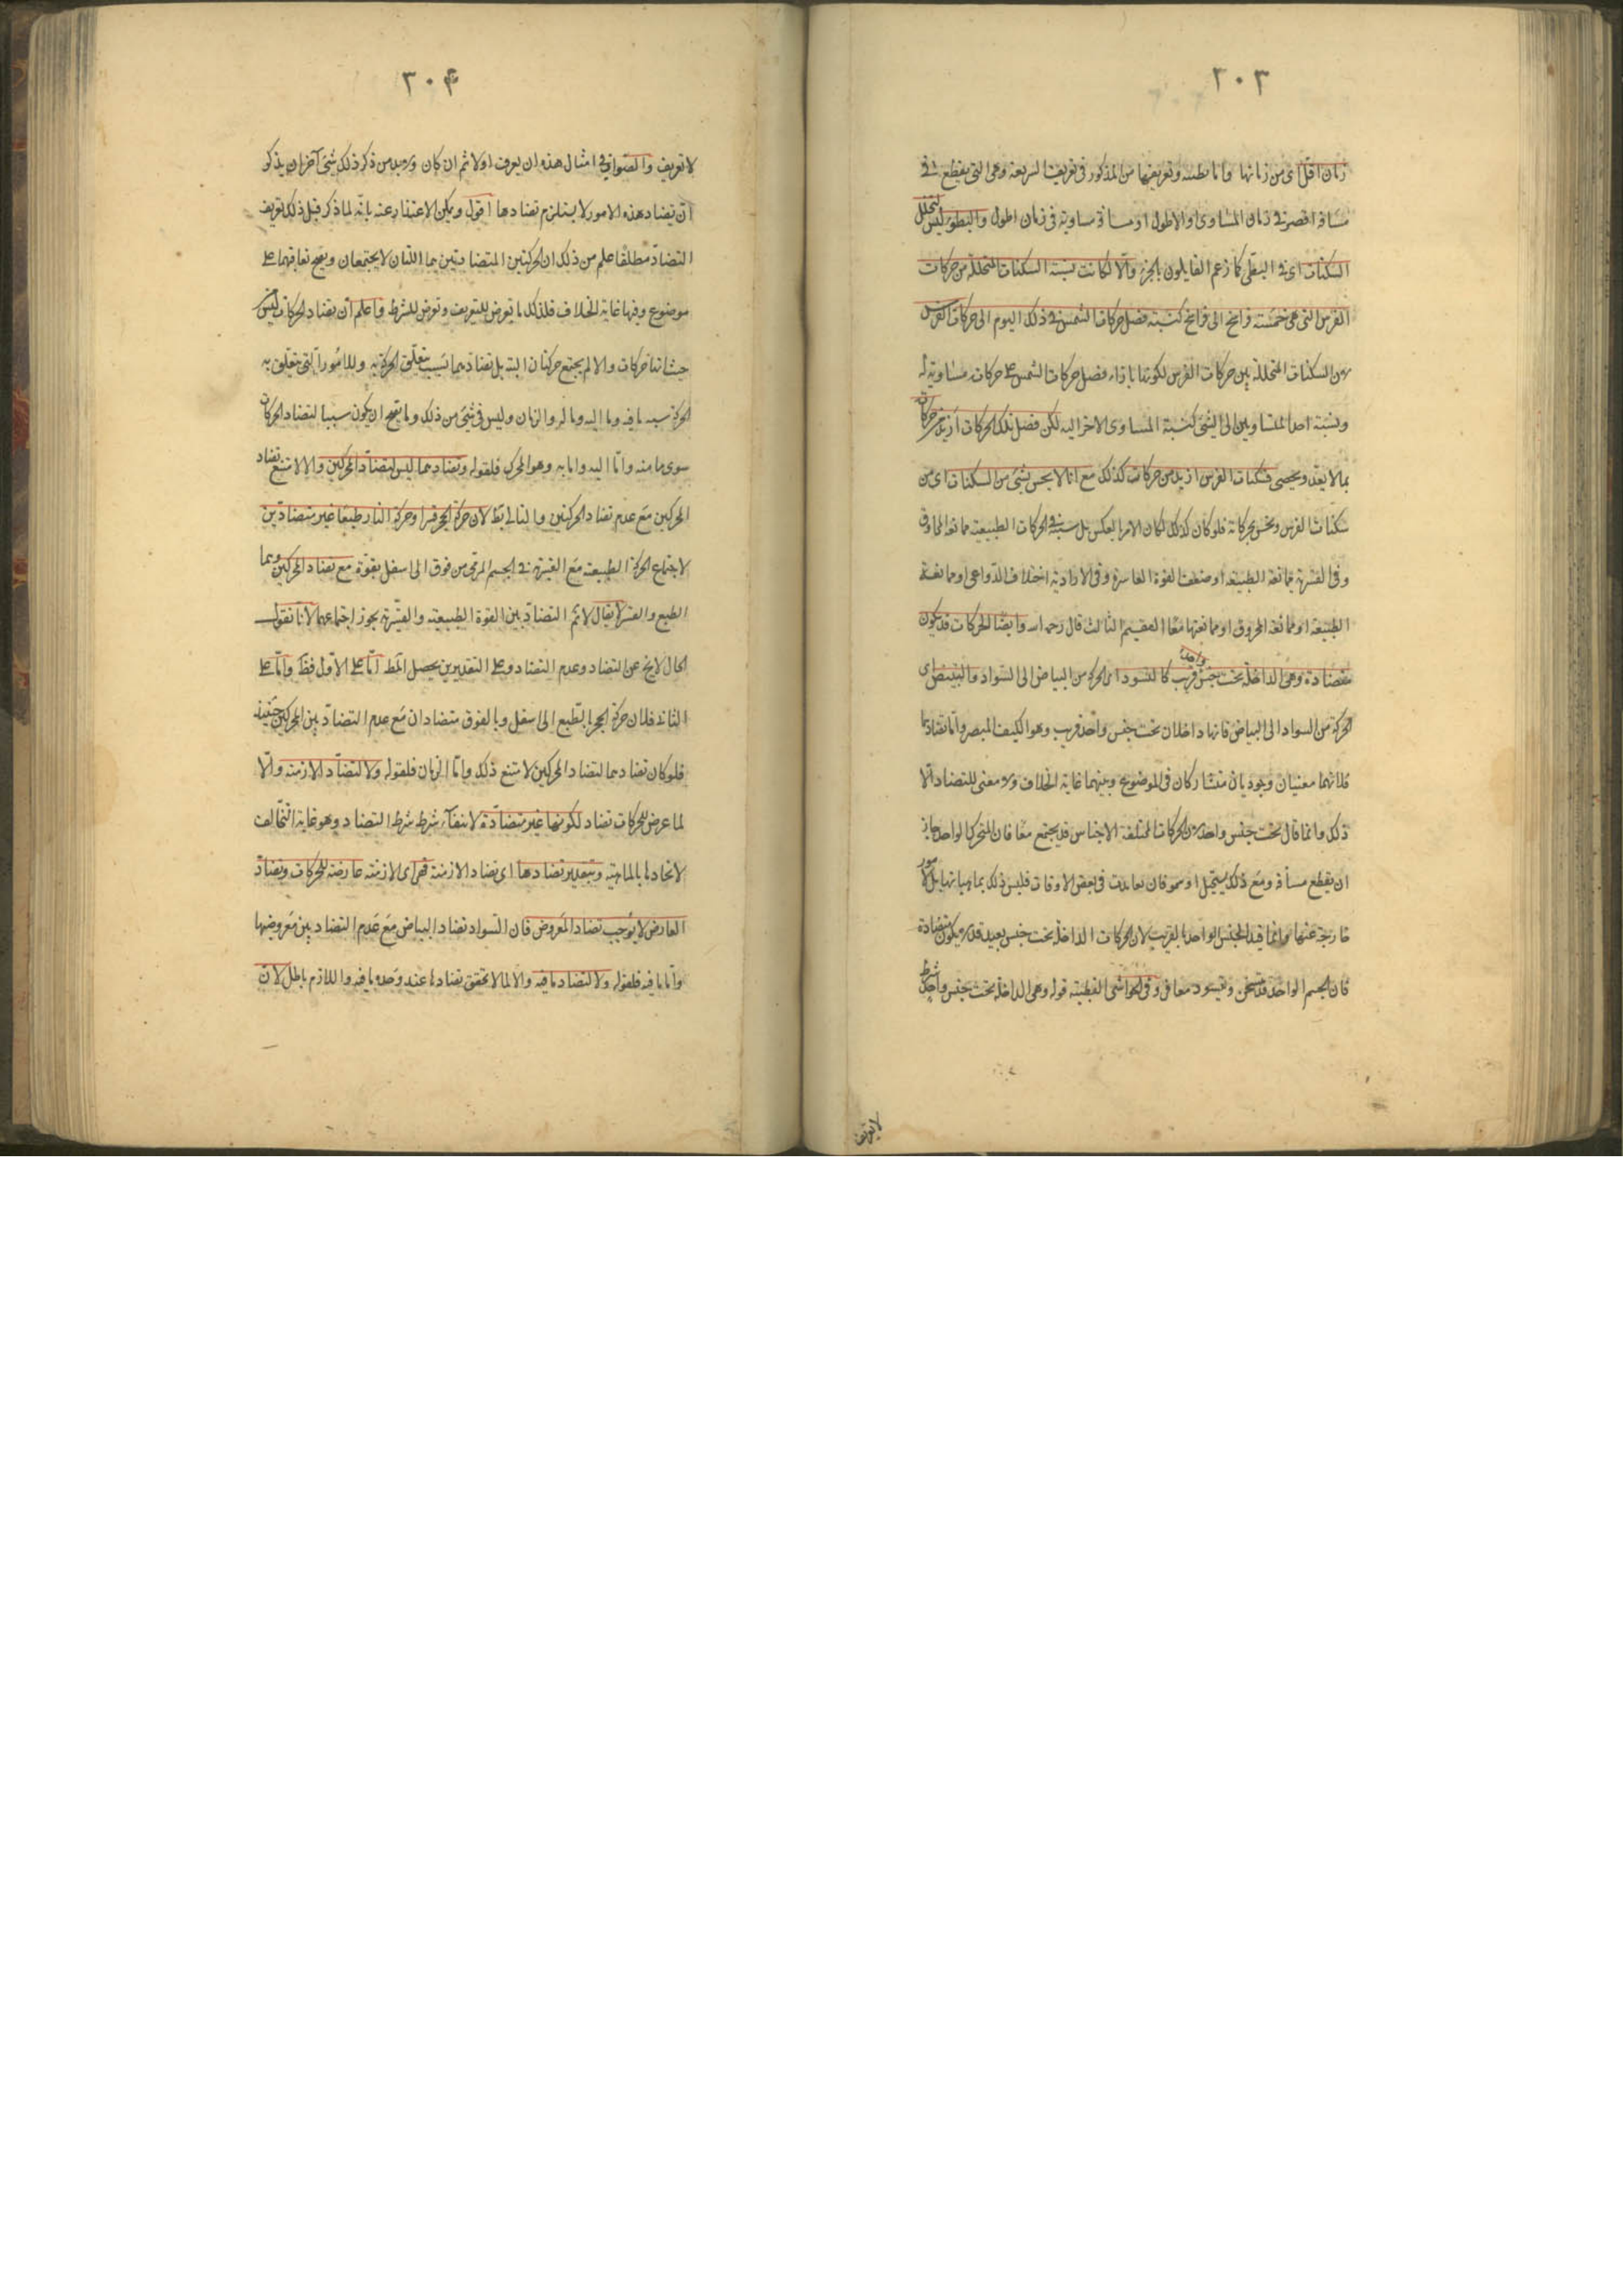 ٣٠٣
زمان اقل اى من زمانها واما بطيئة وتعريفها من المذكور فى تعريف السريعة وهى التى يقطع فى
مسافة اقصر فى زمان المساوى او الاطول او مسافة مساوية فى زمان اطول والبطوء ليس لتخلل
السكنات اى فى البطئ كما زعم القايلون بالجزء والا لكانت نسبة السكنات المتخللة من حركات
الفرس التى هى خمسة فراسخ الى فراسخ كنسبة فضل حركات الشمس فى ذلك اليوم الى حركات الفرس
من السكنات المتخللة بين حركات الفرس لكونها بازاء فضل حركات الشمس على حركاته مساوية له
ونسبة احد المتساويين الى الشئ كنسبة المساوى الاخر اليه لكن فضل تلك الحركات ازيد من حركاته
بما لا يعد ويحصى فسكنات الفرس ازيد من حركاته كذلك مع انا لا نحس بشئ من السكنات اى من
سكنات الفرس ونحس بحركاته فلو كان كذلك لكان الامر بالعكس بل سببه فى الحركات الطبيعية ممانعة المخروق
وفى القسرية ممانعة الطبيعة او ضعف القوة القاسرة وفى الارادية اختلاف الدواعى او ممانعة
الطبيعة او ممانعة المخروق او ممانعتها معا التقسيم الثالث قال رحمه الله وايضا الحركات قد يكون
متضادة وهى الداخلة تحت جنس واحد قريب كالتسود اى الحركة من البياض الى السواد والتبيض اى
الحركة من السواد الى البياض فانها داخلان تحت جنس واحد قريب وهو الكيف المبصر واما تضادهما
فلانهما معنيان وجوديان متشاركان فى الموضوع وبينهما غاية الخلاف ولا معنى للتضاد الا
ذلك وانما قال تحت جنس واحد لان الحركات المختلفة الاجناس قد يجتمع معا فان المتحرك الواحد جاز
ان يقطع مسافة ومع ذلك يستحيل او ينمو فان تعاندت فى بعض الاوقات فليس ذلك بماهياتها بل لامور
خارجة عنها وانما قيد الجنس الواحد بالقريب لان الحركات الداخلة تحت جنس بعيد قد لا يكون متضادة
فان الجسم الواحد قد يتسخن ويتسود معا فى وفى الحواشى القطبية قوله وهى الداخلة تحت جنس واحد شرط
لا تعريف
٣٠۴
لا تعريف والصواب فى امثال هذه ان يعرف اولا ثم ان كان ولا بد من ذكر ذلك شئ آخر ان يذكر
ان تضاد هذه الامور لا يستلزم تضادها اقول ويمكن الاعتذار عنه بانه لما ذكر قبل ذلك تعريف
التضاد مطلقا علم من ذلك ان الحركتين المتضادتين هما اللتان لا يجتمعان ويصح تعاقبهما على
موضوع وفيها غاية الخلاف فلذلك ما تعرض للتعريف وتعرض للشرط واعلم ان تضاد الحركات ليس
حيث انها حركات والا لم يجتمع حركتان البتة بل تضادهما بسبب يتعلق الحركة به وللامور التى يتعلق به
الحركة ستة ما فيه وما اليه وما له والزمان وليس فى شئ من ذلك وما يتوهم ان يكون سببا لتضاد الحركات
سوى ما منه واما اليه واما به وهو المحرك فلقوله وتضادهما ليس لتضاد المحركين والا لامتنع تضاد
المحركين مع عدم تضاد الحركتين والتالى بط لان حركة الحجر قسرا وحركة النار طبعا غير متضادتين
لاجتماع الحركة الطبيعية مع القسرية فى الجسم المرمى من فوق الى اسفل بقوة مع تضاد المحركين وهما
الطبع والقسر لا يقال لا نم التضاد بين القوة الطبيعية والقسرية بجواز اجتماعهما لانا نقول
الحال لا يخ عن التضاد وعدم التضاد وعلى التقديرين يحصل المط اما على الاول فظ واما على
الثانى فلان حركة الحجر بالطبع الى اسفل وبالفوق متضادان مع عدم التضاد بين المحركين حينئذ
فلو كان تضادهما لتضاد المحركين لامتنع ذلك واما الزمان فلقوله ولا لتضاد الازمنة والا
لما عرض للحركات تضاد لكونها غير متضادة لانتفاء شرط شرط التضاد وهو غاية التخالف
لاتحادها بالماهية وبتقدير تضادها اى تضاد الازمنة فهى اى الازمنة عارضة للحركات وتضاد
العارض لا يوجب تضاد المعروض فان السواد تضاد البياض مع عدم التضاد بين معروضيها
واما ما فيه فلقوله ولا لتضاد ما فيه والا لما لا تحقق تضادها عند وحدة ما فيه واللازم باطل لان